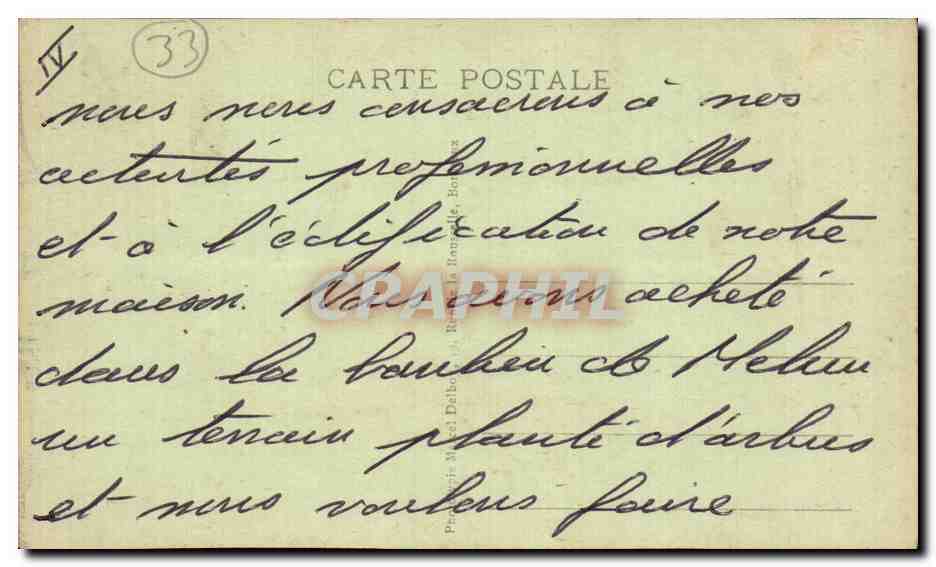 IV
33
CARTE POSTALE
nous nous consacrons à nos
activités professionnelles
et à l'édification de notre
maison. Nous avons acheté
dans la banlieu de Melun
un terrain planté d'arbres
et nous voulons faire
CRAPHIL
Marcel Delboy, Rousselle,